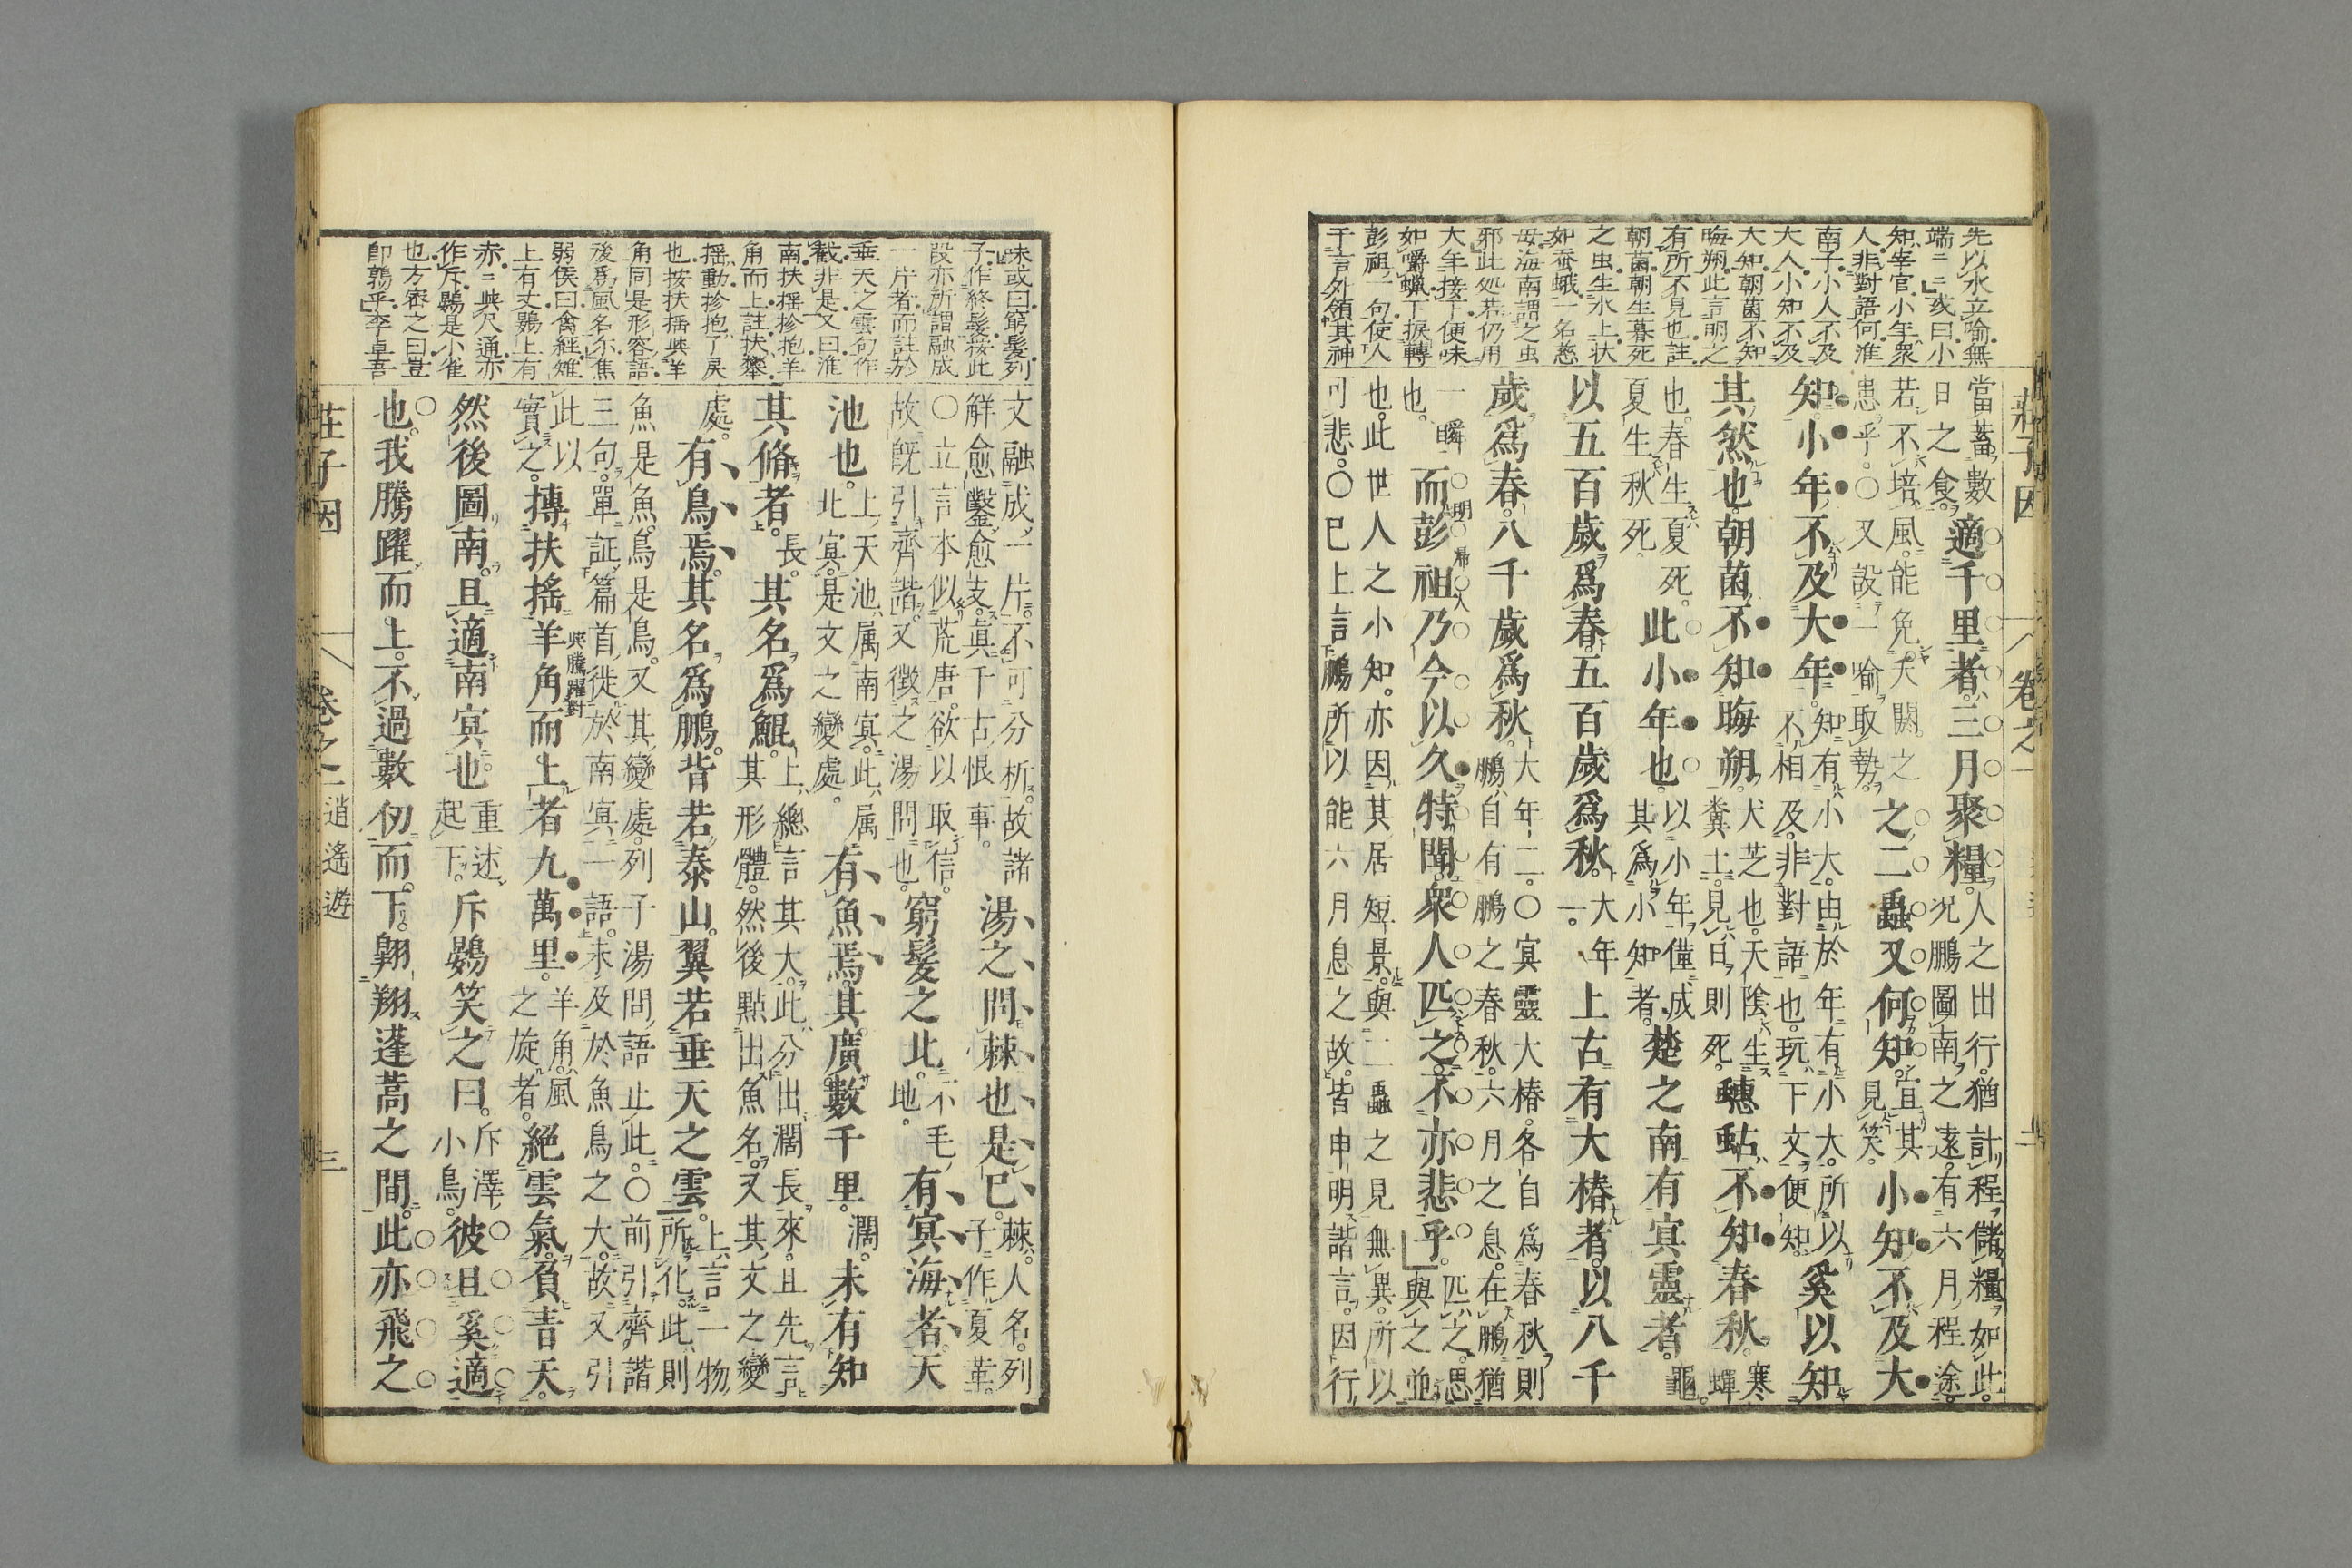 莊子因 卷之一 二
先以水立喻無
端ニニ或曰小
知宰官小年衆
人非對語何淮
南子小人不及
大人小知不及
大知朝菌不知
晦朔此言明之
有所不見也註
朝菌朝生暮死
之虫生水上状
如蚕蛾一名慈
母海南謂之虫
邪此処若仍用
大年接下便味
如嚼蠟下捩轉
彭祖一句使人
于言外領其神
當蓄數日之食。適千里者。三月聚糧。人之出行。猶計程儲糧如此。况鵬圖南之遠。有六月程途。
若不培風。能免夭閼之患乎。○又設一喻取勢。之二蟲又何知。宜其見笑。小知不及大
知。小年不及大年。知有小大。由於年有小大。所以不相及。非對語也。玩下文便知。奚以知
其然也。朝菌不知晦朔。犬芝也。天陰生糞土。見日則死。蟪蛄不知春秋。寒蟬
也。春生夏死。夏生秋死。此小年也。以小年僅成其爲小知者。楚之南有冥靈者。龜。
以五百歲爲春。五百歲爲秋。大年一。上古有大椿者。以八千
歲爲春。八千歲爲秋。大年二。○冥靈大椿。各自爲春秋。則鵬自有鵬之春秋。六月之息。在鵬猶
一瞬也。而彭祖乃今以久特聞。衆人匹之。不亦悲乎。匹之。思與之並
也。此世人之小知。亦因其居短景。與二蟲之見無異。所以可悲。○已上言鵬所以能六月息之故。皆申明諧言。因行
味或曰窮髮列
子作終髮按此
段亦所謂融成
一片者而註於
垂天之雲句作
截非是又曰淮
南扶揺抮抱羊
角而上註扶攀
揺動抮抱了戾
也按扶揺與羊
角同是形容語
後爲風名尓焦
弱侯曰禽經雉
上有丈鷃上有
赤ニ與尺通亦
作斥鷃是小雀
也方密之曰豈
即鶉乎李卓吾
文融成一片。不可分析。故諸解愈鑿愈支。眞千古恨事。湯之問棘也是已。棘人名。列子作夏革。
○立言本似荒唐。欲以取信。故既引齊諧。又徵之湯問也。窮髮之北。不毛地。有冥海者。天
池也。上天池属南冥。此属北冥。是文之變處。有魚焉。其廣數千里。濶。未有知
其脩者。長。其名爲鯤。上總言其大。此分出濶長來。且先言其形體。然後點出魚名。又其文之變
處。有鳥焉。其名爲鵬。背若泰山。翼若垂天之雲。上言一物所化。此則
魚是魚。鳥是鳥。又其變處。列子湯問語止此。○前引齊諧三句。單証篇首徙於南冥一語。未及於魚鳥之大。故又引
此以實之。搏扶搖羊角而上者九萬里。羊角風之旋者。絕雲氣。負青天。
與騰躍對
然後圖南。且適南冥也。重述起下。斥鷃笑之曰。斥澤小鳥。彼且奚適
也。我騰躍而上。不過數仞而下。翺翔蓬蒿之間。此亦飛之
莊子因 卷之一 逍遙遊 三